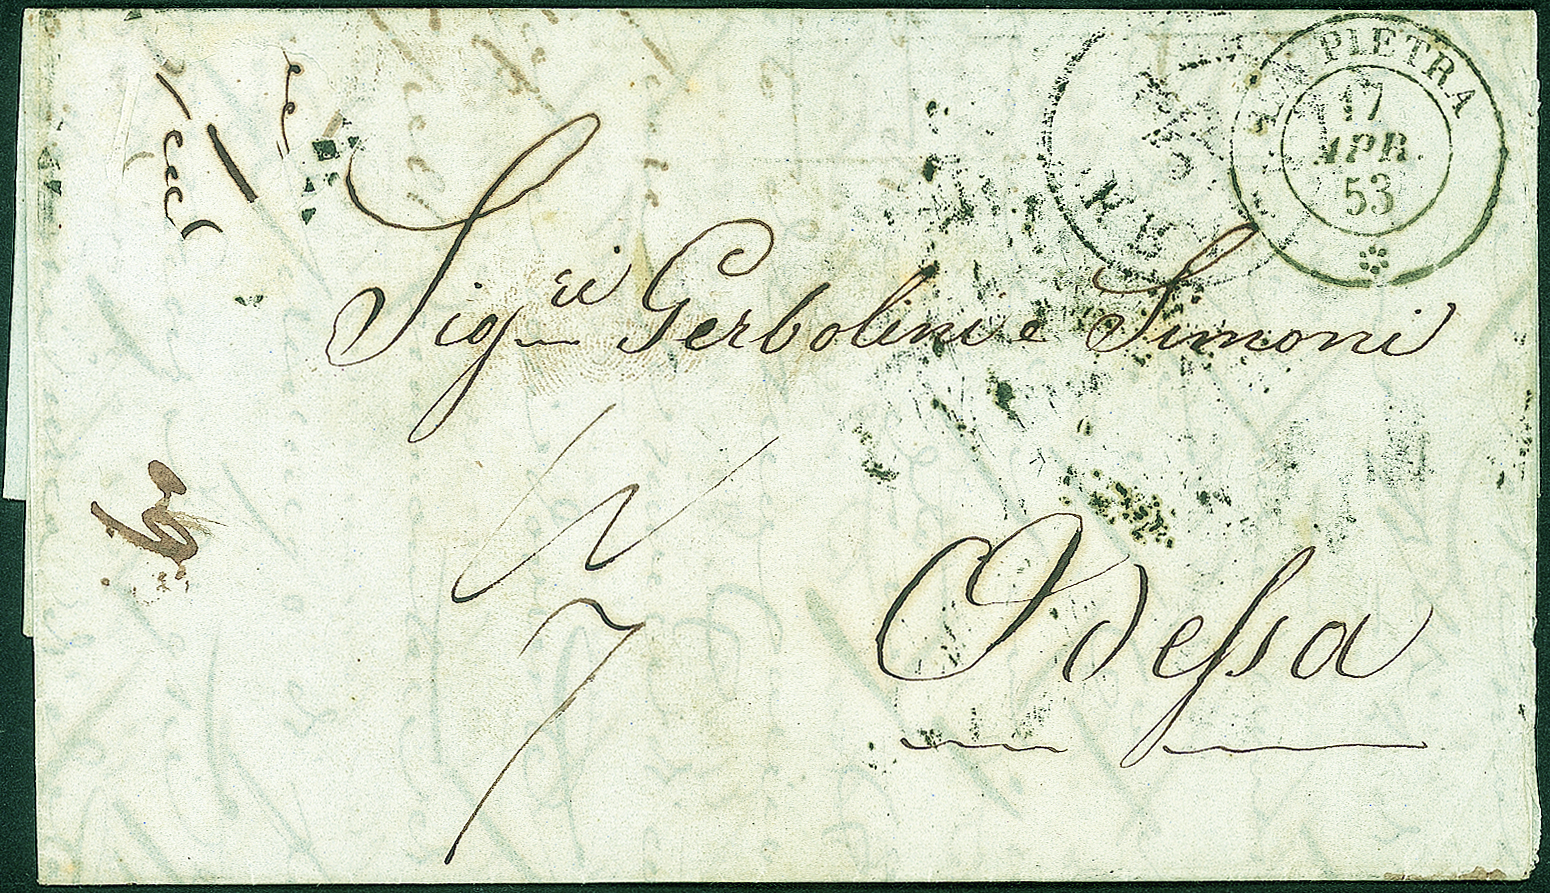 PIETRA
17
APR.
53
Sig.ri Gerbolini e Simoni
7
Odessa